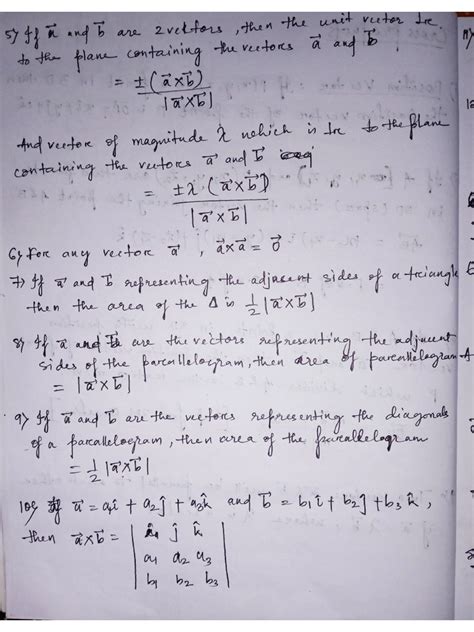 5) If a⃗ and b⃗ are 2 vektors, then the unit vector ⊥r
to the plane containing the vectors a⃗ and b⃗
= ±(a⃗ × b⃗) / |a⃗ × b⃗|
And vector of magnitude λ which is ⊥r to the plane
containing the vectors a⃗ and b⃗
= ±λ·(a⃗ × b⃗) / |a⃗ × b⃗|
6) For any vector a⃗, a⃗ × a⃗ = 0⃗
7) If a⃗ and b⃗ representing the adjacent sides of a triangle
then the area of the Δ is 1/2 |a⃗ × b⃗|
8) If a⃗ and b⃗ are the vectors representing the adjacent
sides of the parallelogram, then area of parallelogram
= |a⃗ × b⃗|
9) If a⃗ and b⃗ are the vectors representing the diagonals
of a parallelogram, then area of the parallelogram
= 1/2 |a⃗ × b⃗|
10) If a⃗ = a₁î + a₂ĵ + a₃k̂ and b⃗ = b₁î + b₂ĵ + b₃k̂,
then a⃗ × b⃗ = | î ĵ k̂ |
| a₁ a₂ a₃ |
| b₁ b₂ b₃ |